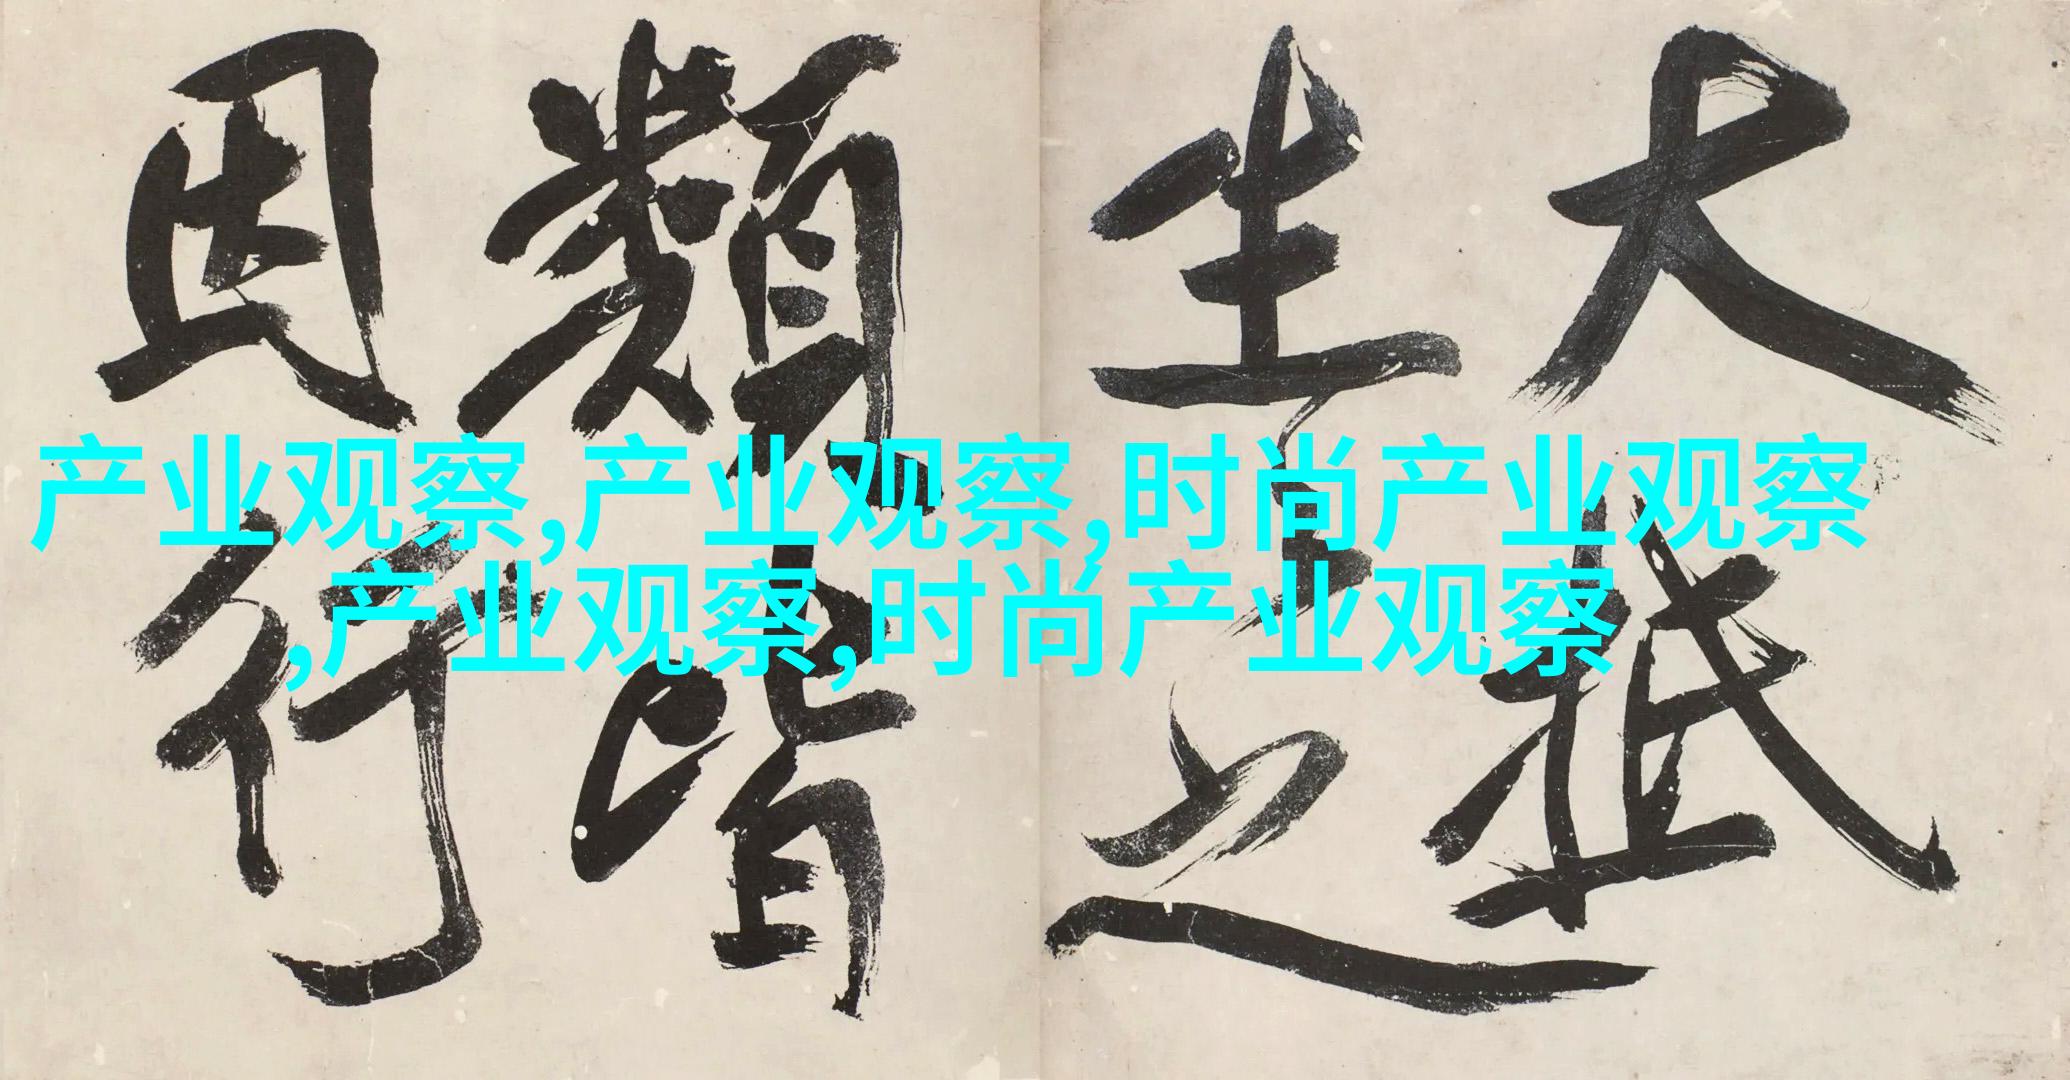 大抵
生之
類皆
因行
产业观察,产业观察,时尚产业观察
,产业观察,时尚产业观察